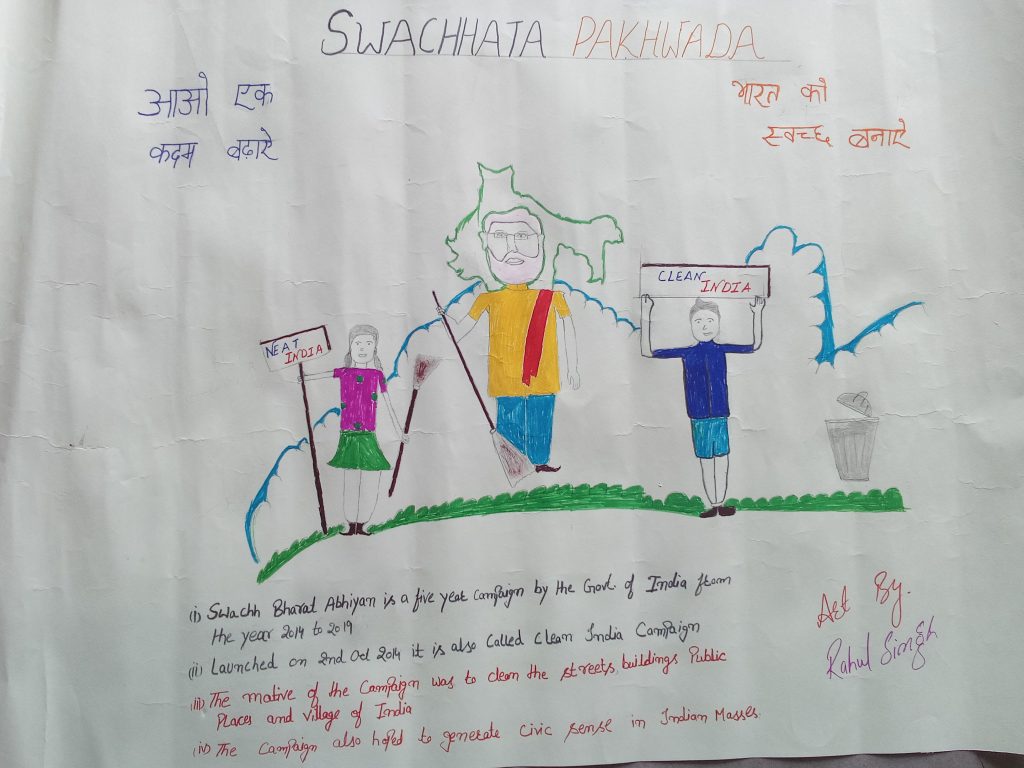 SWACHHATA PAKHWADA
आओ एक
कदम बढ़ाऐ
भारत को
स्वच्छ बनाऐ
CLEAN
INDIA
NEAT
INDIA
(i) Swachh Bharat Abhiyan is a five year Campaign by the Govt. of India from
the year 2014 to 2019
(ii) Launched on 2nd Oct 2014 it is also Called Clean India Campaign
(iii) The mative of the Campaign was to clean the streets, buildings Public
Places and village of India
(iv) The Campaign also hoped to generate civic sense in Indian Masses.
Art By.
Rahul Singh